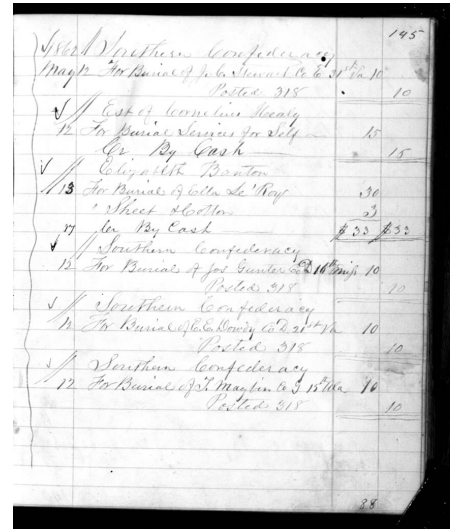 145
1862 Southern Confederacy
May 12 For Burial of J. C. Steward Co E. 21st Va 10
Posted 318 10
Est of Cornelius Healy
12 For Burial Services for Self 15
Cr By Cash 15
Elizabeth
13 For Burial of Ella Le'Roy 30
" Sheet & Cotton 3
17 Cr By Cash $33 $33
Southern Confederacy
12 For Burial of Jos Gunter Co D 16th Miss 10
Posted 318 10
Southern Confederacy
12 For Burial of E. C. Dowdy Co D. 21st Va 10
Posted 318 10
Southern Confederacy
12 For Burial of T. Maybin Co G 15th Ala 10
Posted 318 10
88